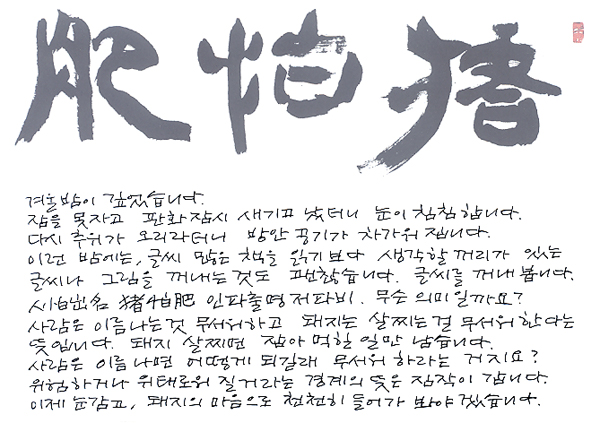 猪怕肥
겨울밤이 깊었습니다.
잠을 못자고 판화 잠시 새기고 났더니 눈이 침침합니다.
다시 추위가 오리라더니 방안 공기가 차가워 집니다.
이런 밤에는, 글씨 많은 책을 읽기보다 생각할 꺼리가 있는
글씨나 그림을 꺼내는 것도 괜찮습니다. 글씨를 꺼내 봅니다.
人怕出名 猪怕肥 인파출명 저파비. 무슨 의미일까요?
사람은 이름나는것 무서워하고 돼지는 살찌는걸 무서워 한다는
뜻입니다. 돼지 살찌면 잡아 먹힐 일만 남습니다.
사람은 이름 나면 어떻게 되길래 무서워 하라는 거지요?
위험하거나 위태로워 질거라는 경계의 뜻은 짐작이 갑니다.
이제 눈감고, 돼지의 마음으로 천천히 들어가 봐야 겠습니다.